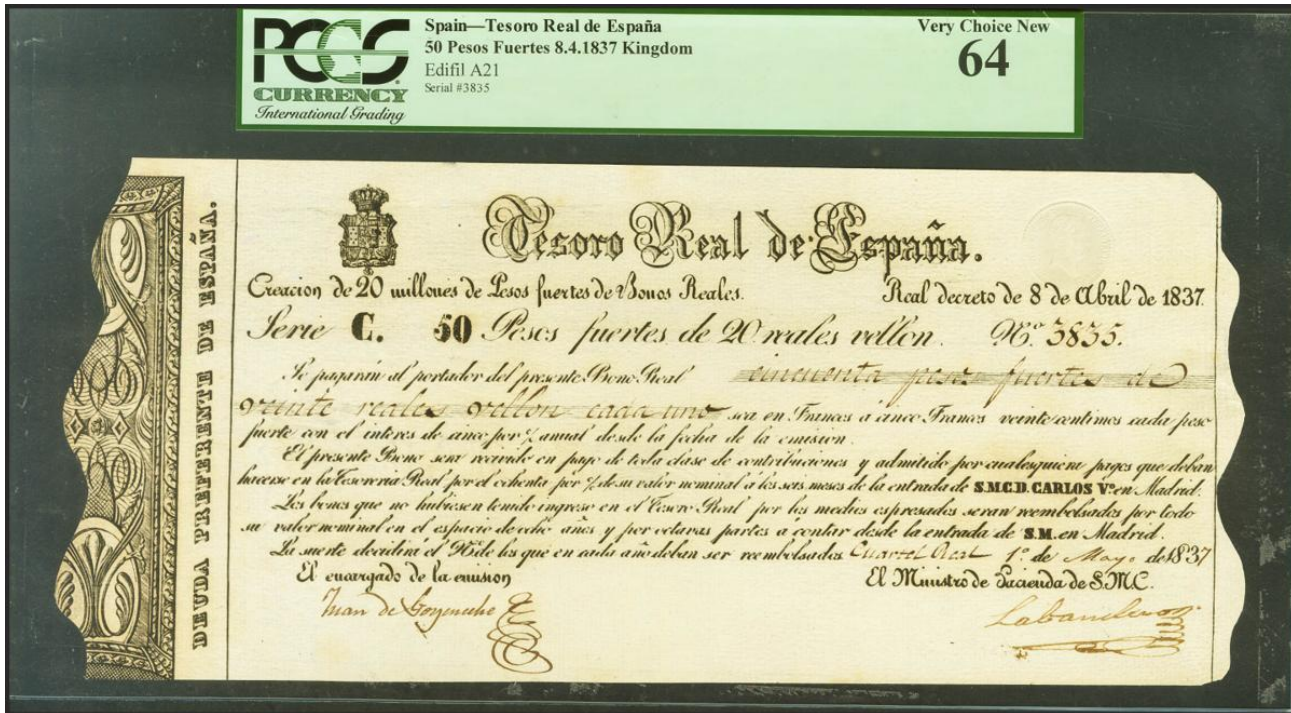 PCGS
CURRENCY
International Grading
Spain—Tesoro Real de España
50 Pesos Fuertes 8.4.1837 Kingdom
Edifil A21
Serial #3835
Very Choice New
64
DEUDA PREFERENTE DE ESPAÑA.
Tesoro Real de España.
Creacion de 20 millones de Pesos fuertes de Bonos Reales. Real decreto de 8 de Abril de 1837.
Serie C. 50 Pesos fuertes de 20 reales vellon. Nº. 3835.
Se pagarán al portador del presente Bono Real cincuenta pesos fuertes de
veinte reales vellon cada uno sea en Francos á cinco Francos veinte centimos cada peso
fuerte con el interes de cinco por % anual desde la fecha de la emision.
El presente Bono sera recivido en pago de toda clase de contribuciones y admitido por cualesquiera pagos que deban
hacerse en la Tesoreria Real por el ochenta por % de su valor nominal á los seis meses de la entrada de S.M.C.D. CARLOS Vº en Madrid.
Los bonos que no hubiesen tenido ingreso en el Tesoro Real por los medios espresados seran reembolsados por todo
su valor nominal en el espacio de ocho años y por octavas partes á contar desde la entrada de S.M. en Madrid.
La suerte decidirá el Nº de los que en cada año deban ser reembolsados Cuartel Real 1º. de Mayo de 1837
El encargado de la emision El Ministro de Hacienda de S.M.C.
Juan de Goyeneche Labandero